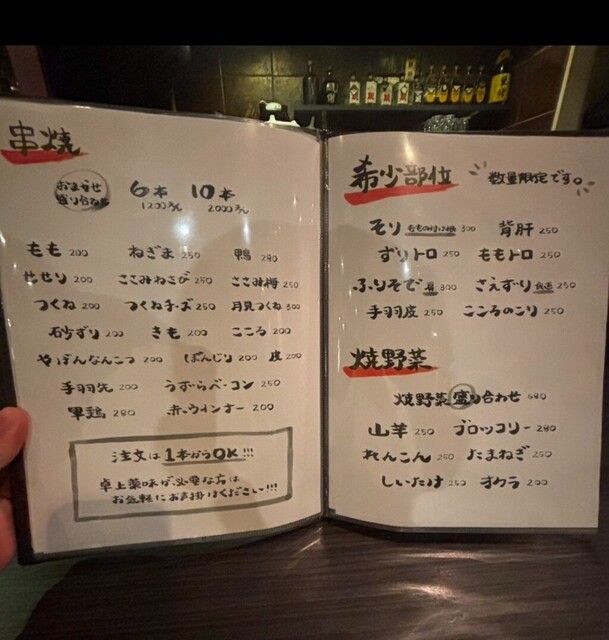 串焼
おまかせ
盛り合わせ
6本 10本
1200えん 2000えん
もも 200 ねぎま 250 鴨 280
せせり 200 ささみわさび 250 ささみ梅 250
つくね 200 つくねチーズ 250 月見つくね 300
砂ずり 200 きも 200 こころ 200
やげんなんこつ 200 ぼんじり 200 皮 200
手羽先 200 うずらベーコン 250
軍鶏 280 赤ウインナー 200
注文は1本からOK!!!
卓上薬味が必要な方は
お気軽にお声掛けください!!!
希少部位 数量限定です。
そり 300 背肝 250
ずりトロ 250 ももトロ 250
ふりそで 肩 300 さえずり 食道 250
手羽皮 250 こころのこり 250
焼野菜
焼野菜盛り合わせ 680
山芋 250 ブロッコリー 280
れんこん 250 たまねぎ 250
しいたけ 250 オクラ 200